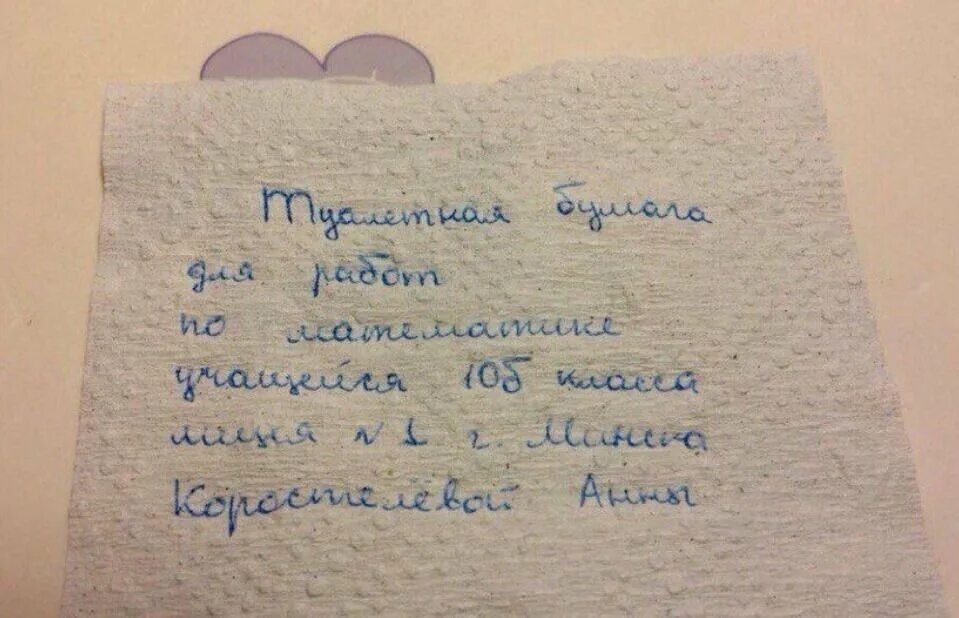 Туалетная бумага
для работ
по математике
учащейся 10б класса
лицея №1 г. Минска
Коростелёвой Анны